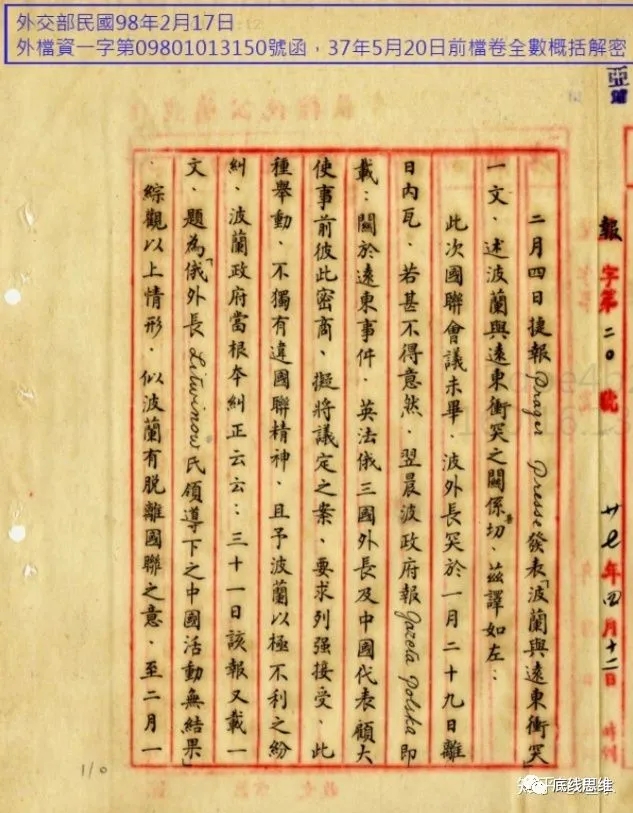 外交部民國98年2月17日
外檔資一字第09801013150號函，37年5月20日前檔卷全數概括解密
亞
報字第二0號 廿七年四月十二日 時刻
二月四日捷報Prager Presse發表「波蘭與遠東衝突」
一文、述波蘭與遠東衝突之關係甚切、茲譯如左：
此次國聯會議未畢、波外長突於一月二十九日離
日內瓦、若甚不得意然、翌晨波政府報Gazeta Polska即
載：關於遠東事件、英法俄三國外長及中國代表顧大
使事前彼此密商、擬將議定之案、要求列强接受、此
種舉動、不獨有違國聯精神、且予波蘭以極不利之紛
糾、波蘭政府當根本糾正云云：三十一日該報又載一
文、題為「俄外長Litwinow氏領導下之中國活動無結果」
綜觀以上情形、似波蘭有脫離國聯之意、至二月一
1/0
底线思维